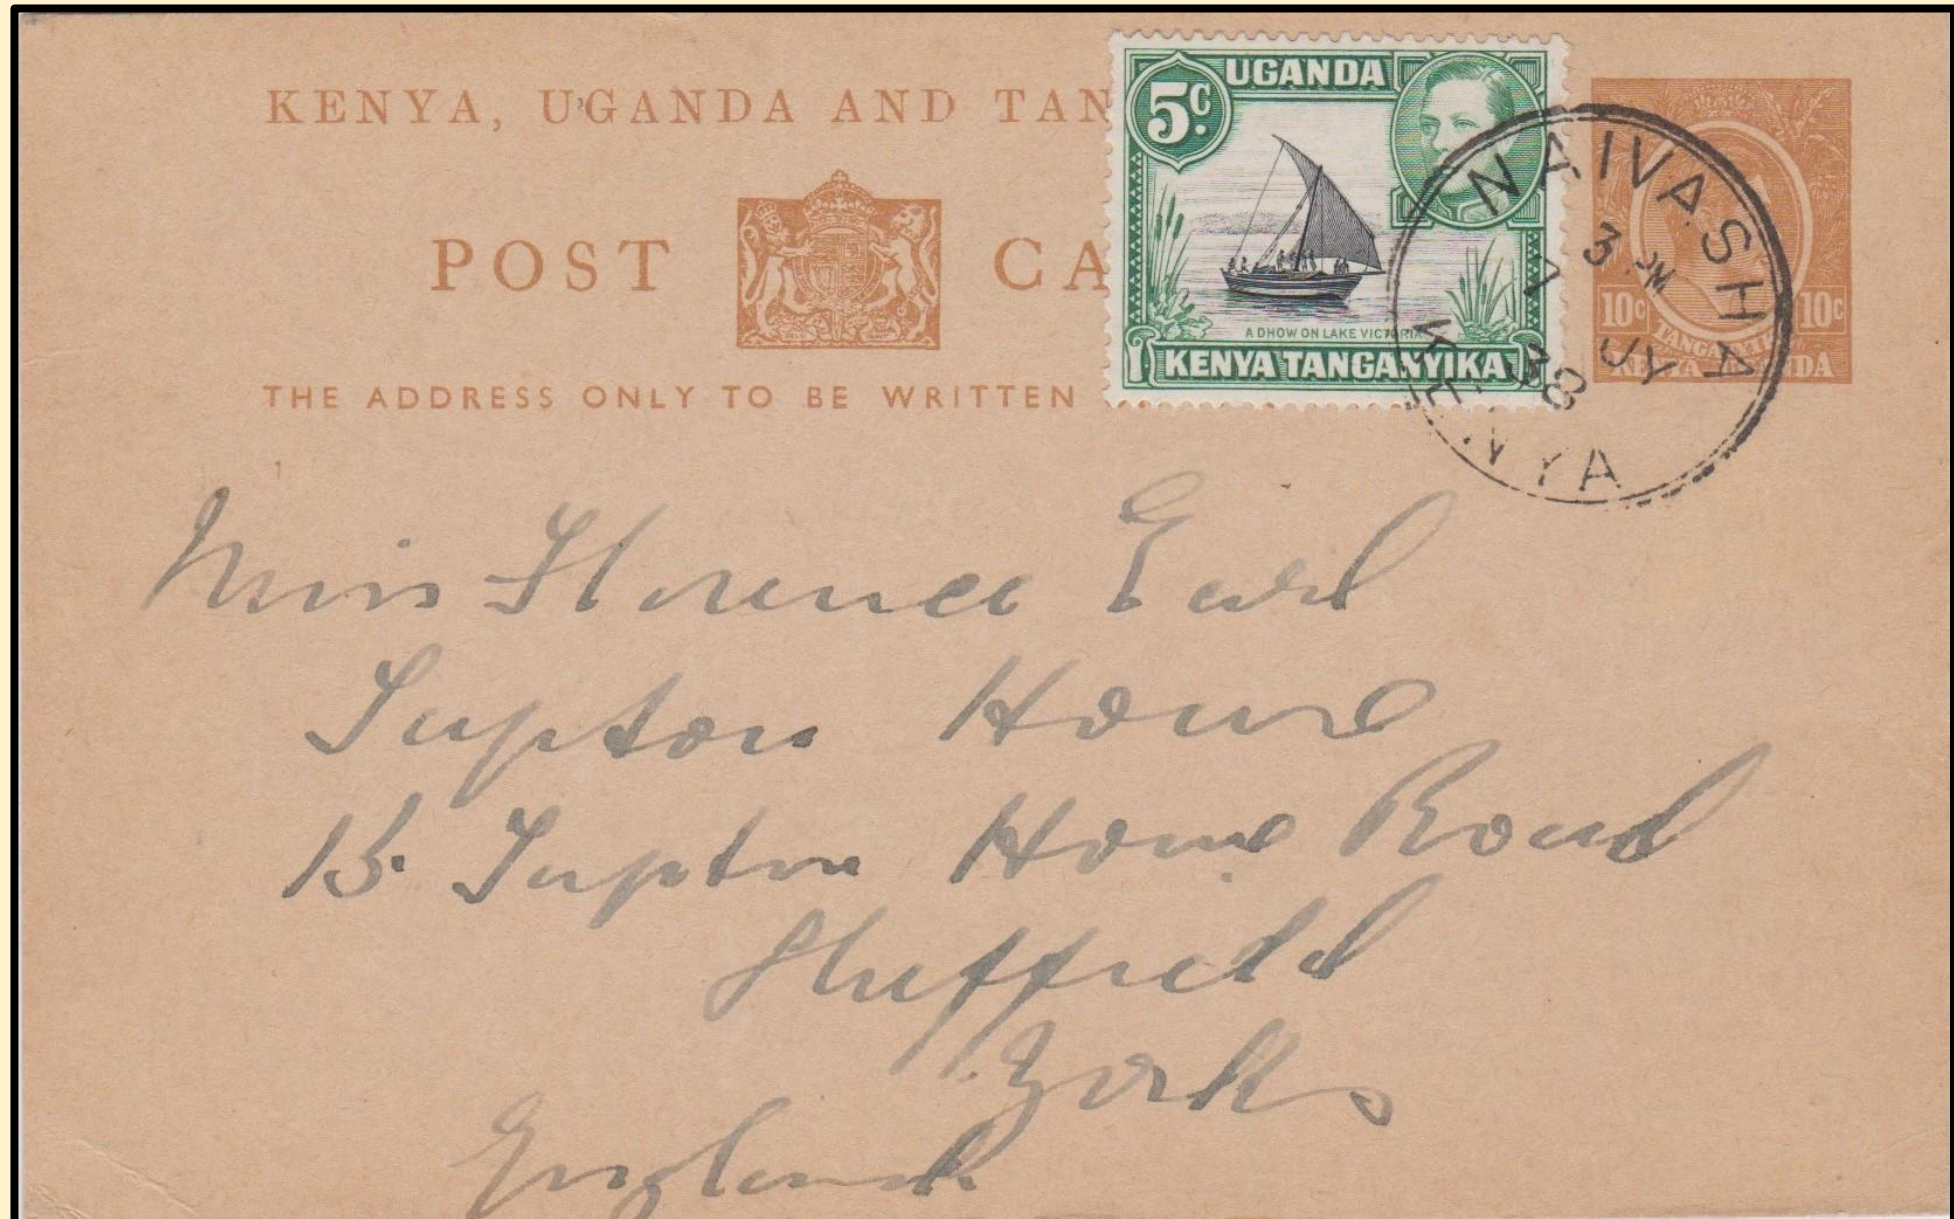 KENYA, UGANDA AND TAN
POST CA
THE ADDRESS ONLY TO BE WRITTEN
5c.
UGANDA
A DHOW ON LAKE VICTORIA
KENYA TANGANYIKA
10c 10c
TANGANYIKA
KENYA UGANDA
NAIVASHA
3 PM
7 JY
38
KENYA
Miss Florence Earl
Tapton House
15. Tapton House Road
Sheffield
Yorks
England